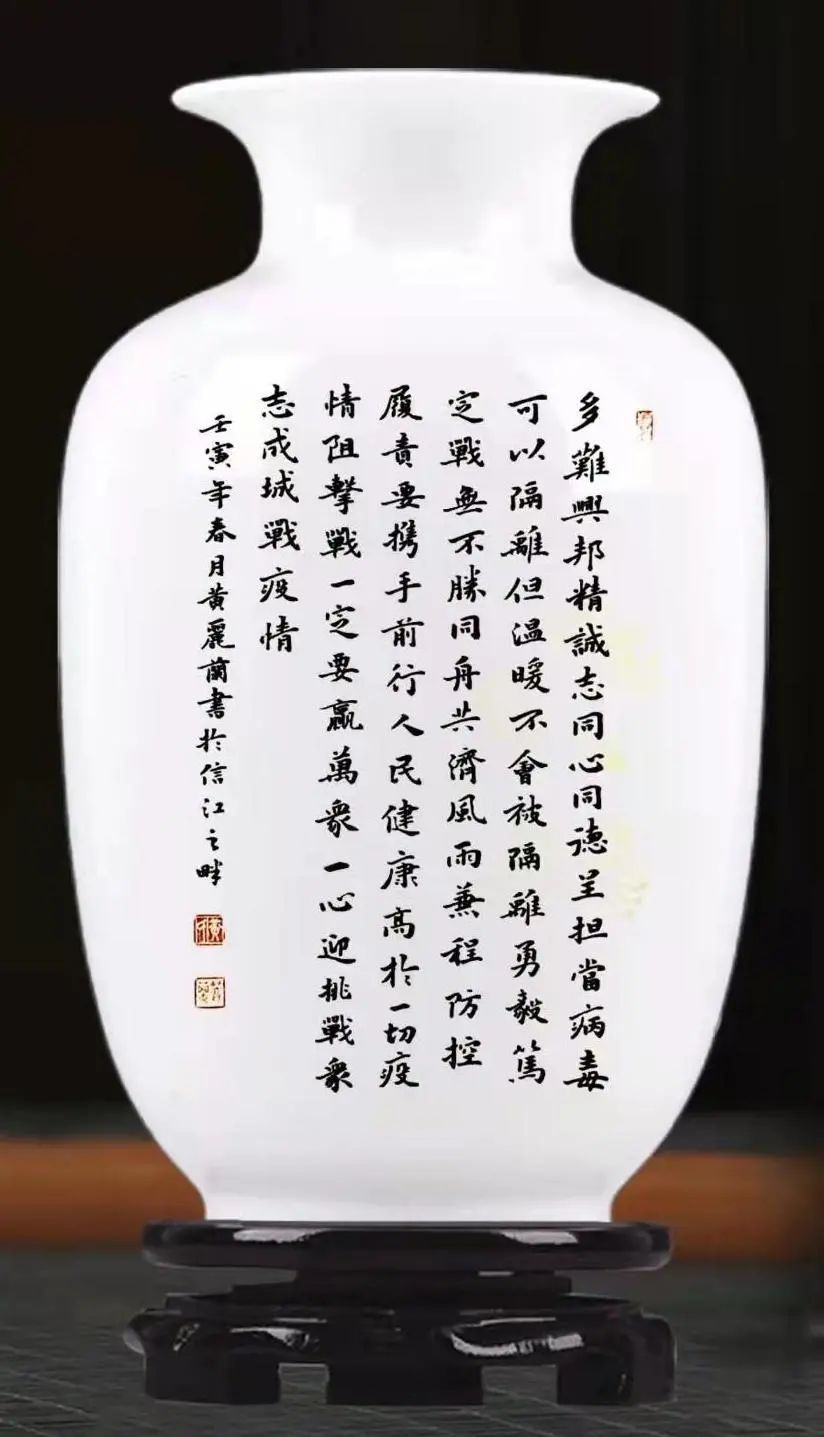 多難興邦精誠志同心同德呈担當病毒
可以隔離但温暖不會被隔離勇毅篤
定戰無不勝同舟共濟風雨兼程防控
履責要携手前行人民健康高於一切疫
情阻擊戰一定要贏萬衆一心迎挑戰衆
志成城戰疫情
壬寅年春月黄麗蘭書於信江之畔